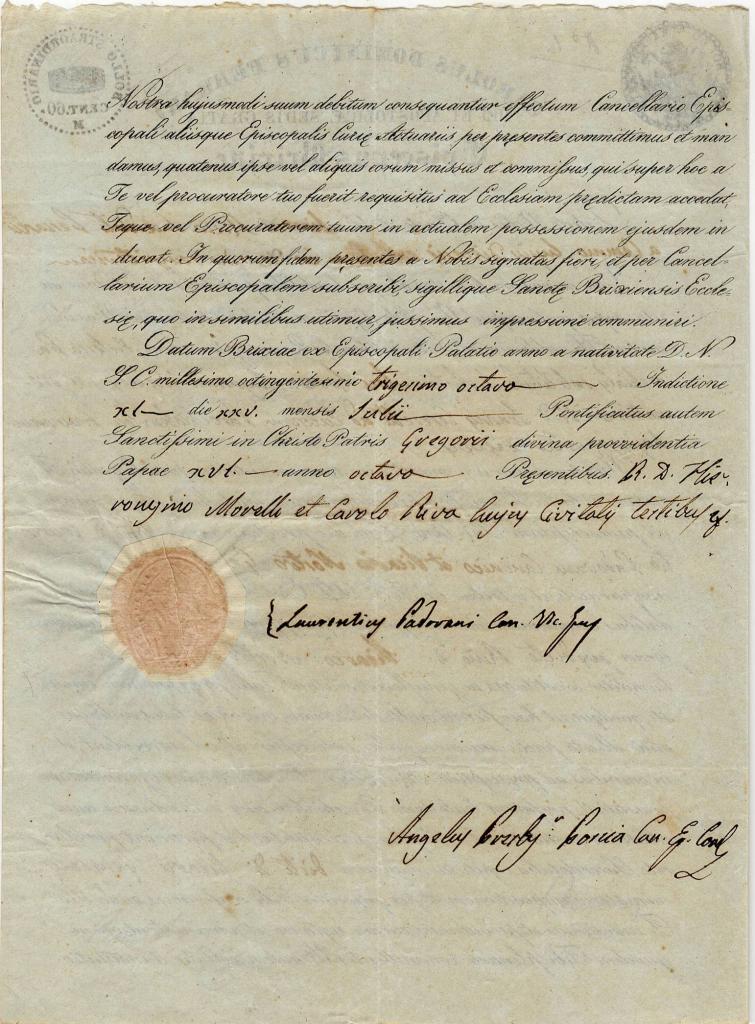 Nostra hujusmodi suum debitum consequantur effectum Cancellario Epis-
copali aliisque Episcopalis Curię Actuariis per pręsentes committimus et man
damus, quatenus ipse vel aliquis eorum missus et commissus, qui super hoc a
Te vel procuratore tuo fuerit requisitus ad Ecclesiam prędictam accedat,
Teque vel Procuratorem tuum in actualem possessionem ejusdem in
ducat. In quorum fidem pręsentes a Nobis signatas fieri, et per Cancel-
larium Episcopalem subscribi, sigillique Sanctę Brixiensis Eccle-
się, quo in similibus utimur, jussimus impressione communiri.
Datum Brixiae ex Episcopali Palatio anno a nativitate D. N.
J. C. millesimo octingentesimo trigesimo octavo Indictione
XI die XXV. mensis Julii Pontificatus autem
Sanctissimi in Christo Patris Gregorii divina provvidentia
Papae XVI. anno octavo Pręsentibus R. D. Hie-
ronymo Morelli et Carolo Riva hujus Civitatis testibus
Laurentius Padovani Can. Vic.
Angelus Can. Ep.
BOLLO STRAORDINARIO
CENT. 60
M